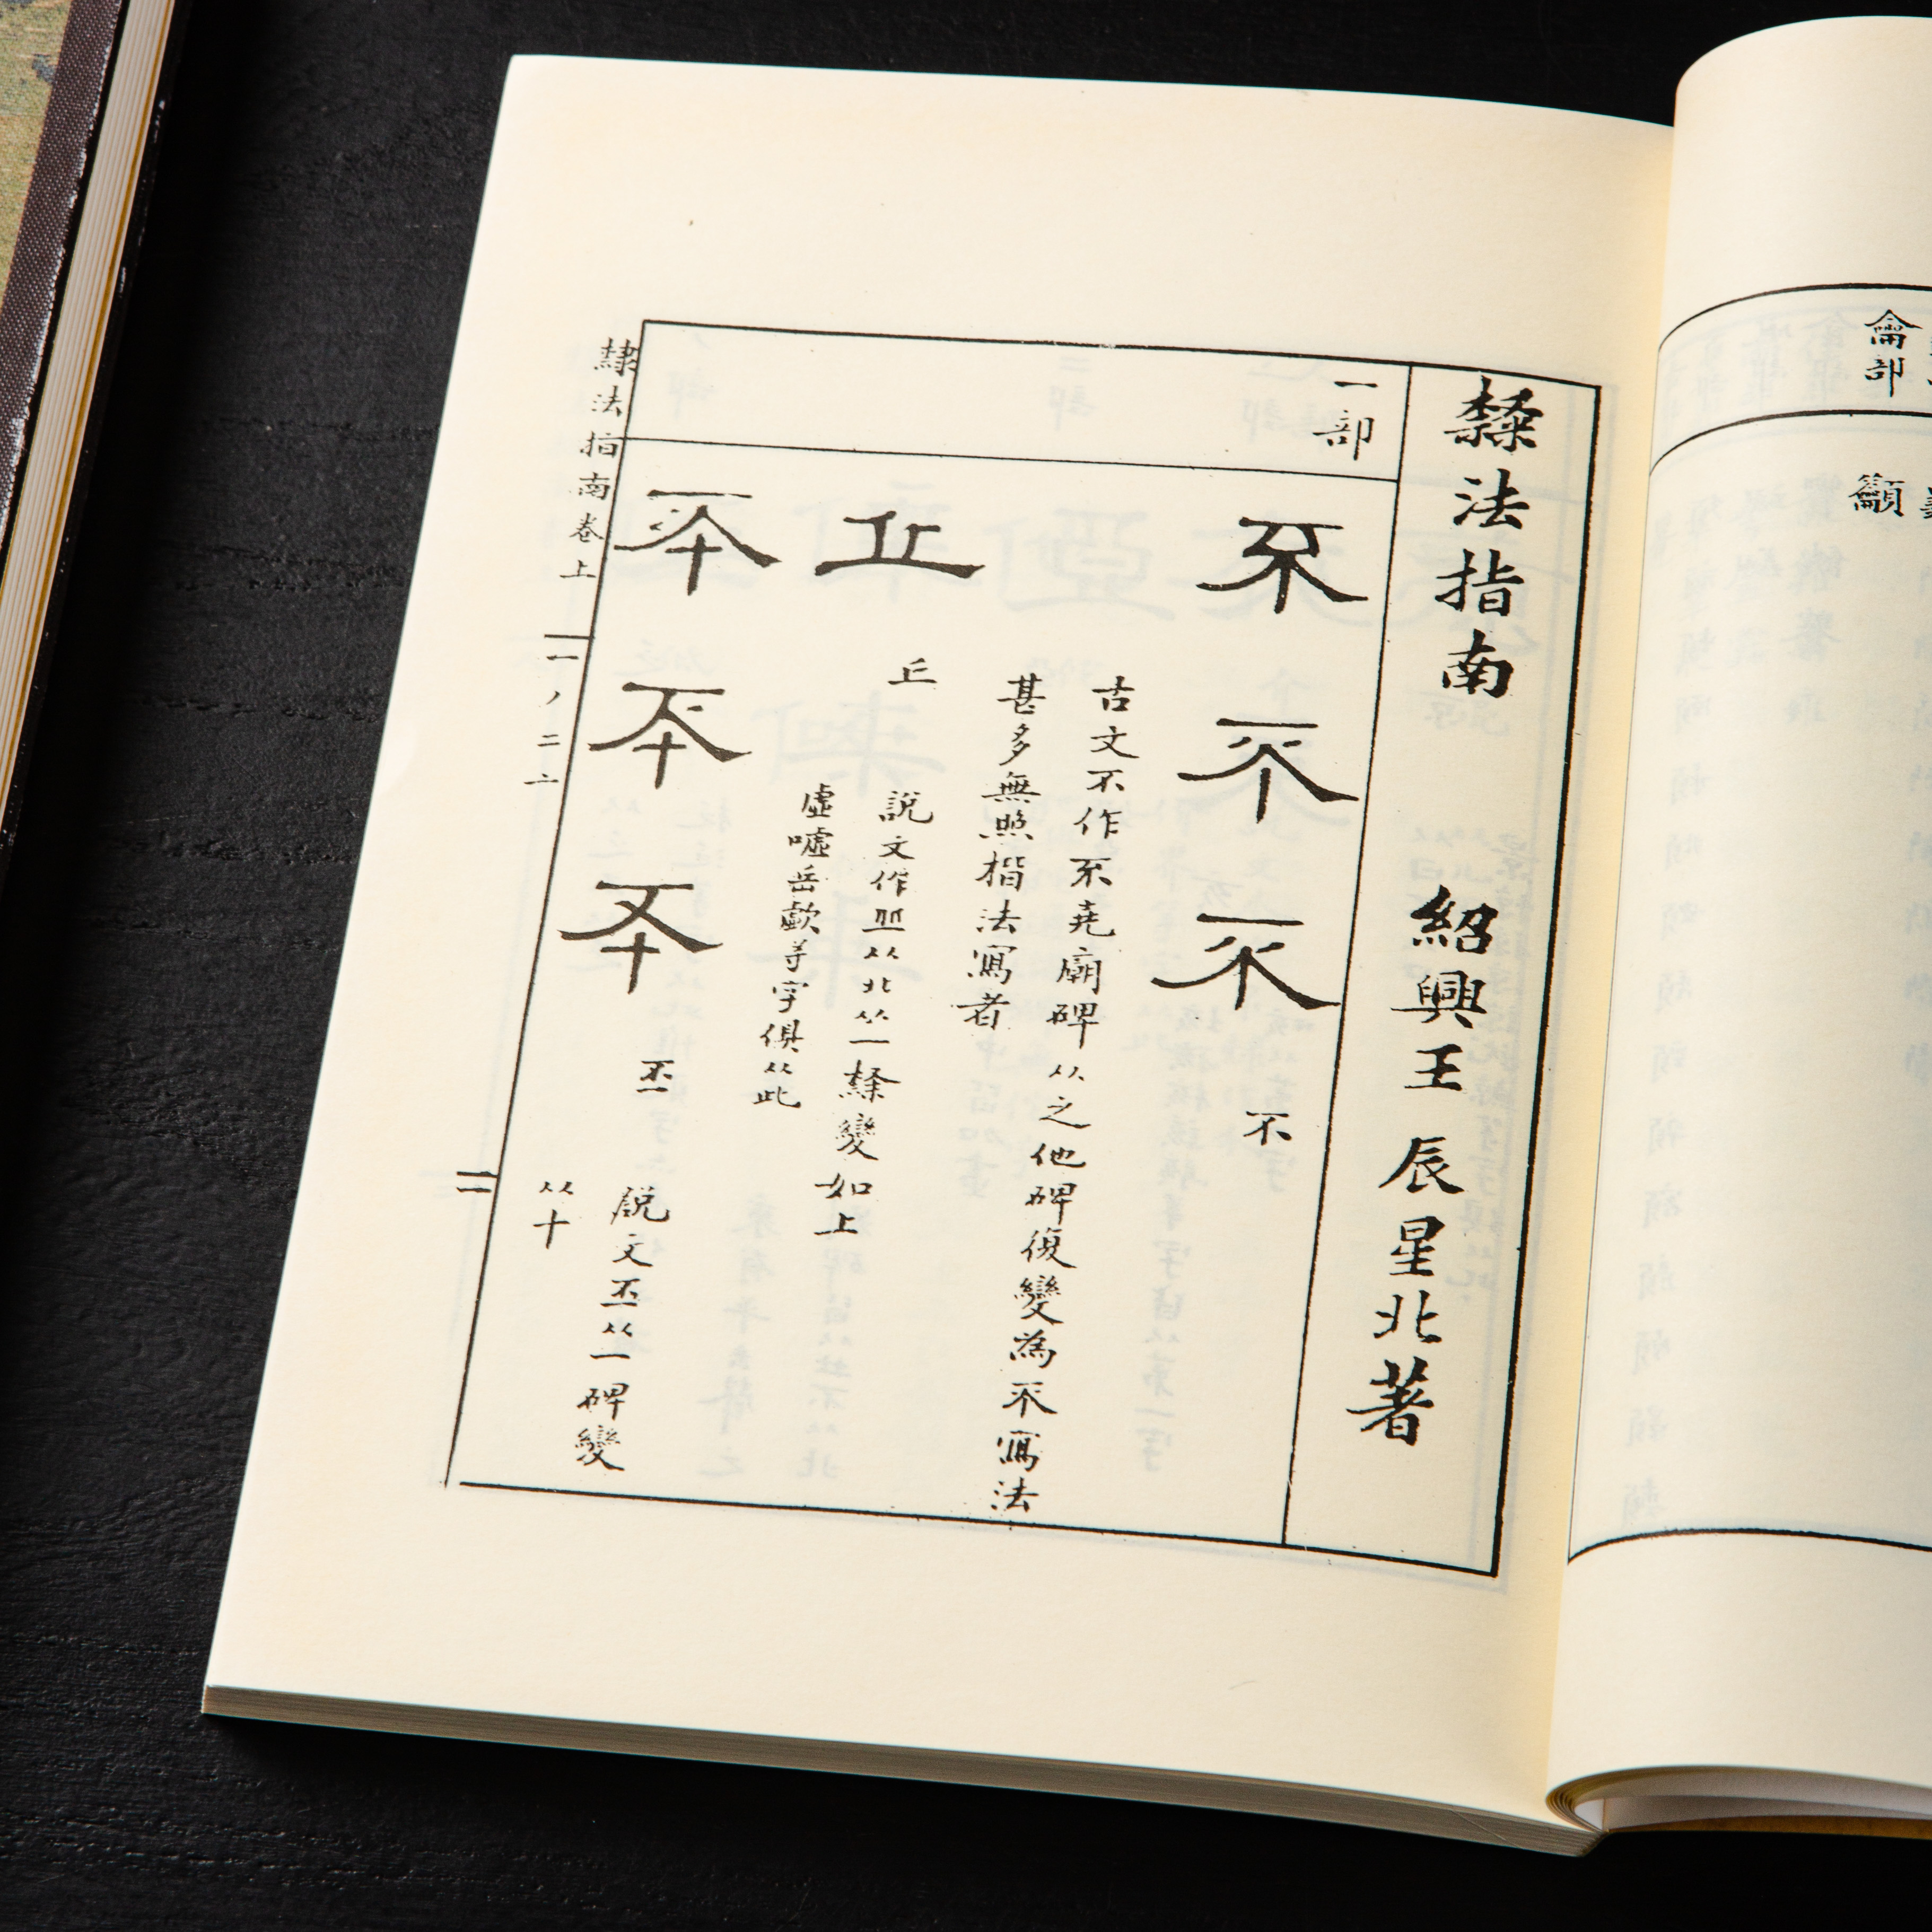 龠部
籲
𣜩法指南 紹興王辰星北著
一部
不 不 不 不
古文不作𠀚堯廟碑从之他碑復變為不寫法
甚多無照楷法寫者
丘 丘
說文作丠从北从一𣜩變如上
虛噓岳歔等字俱从此
丕 丕 丕 丕
說文丕从一碑變
从十
隸法指南卷上 一丿二亠 二